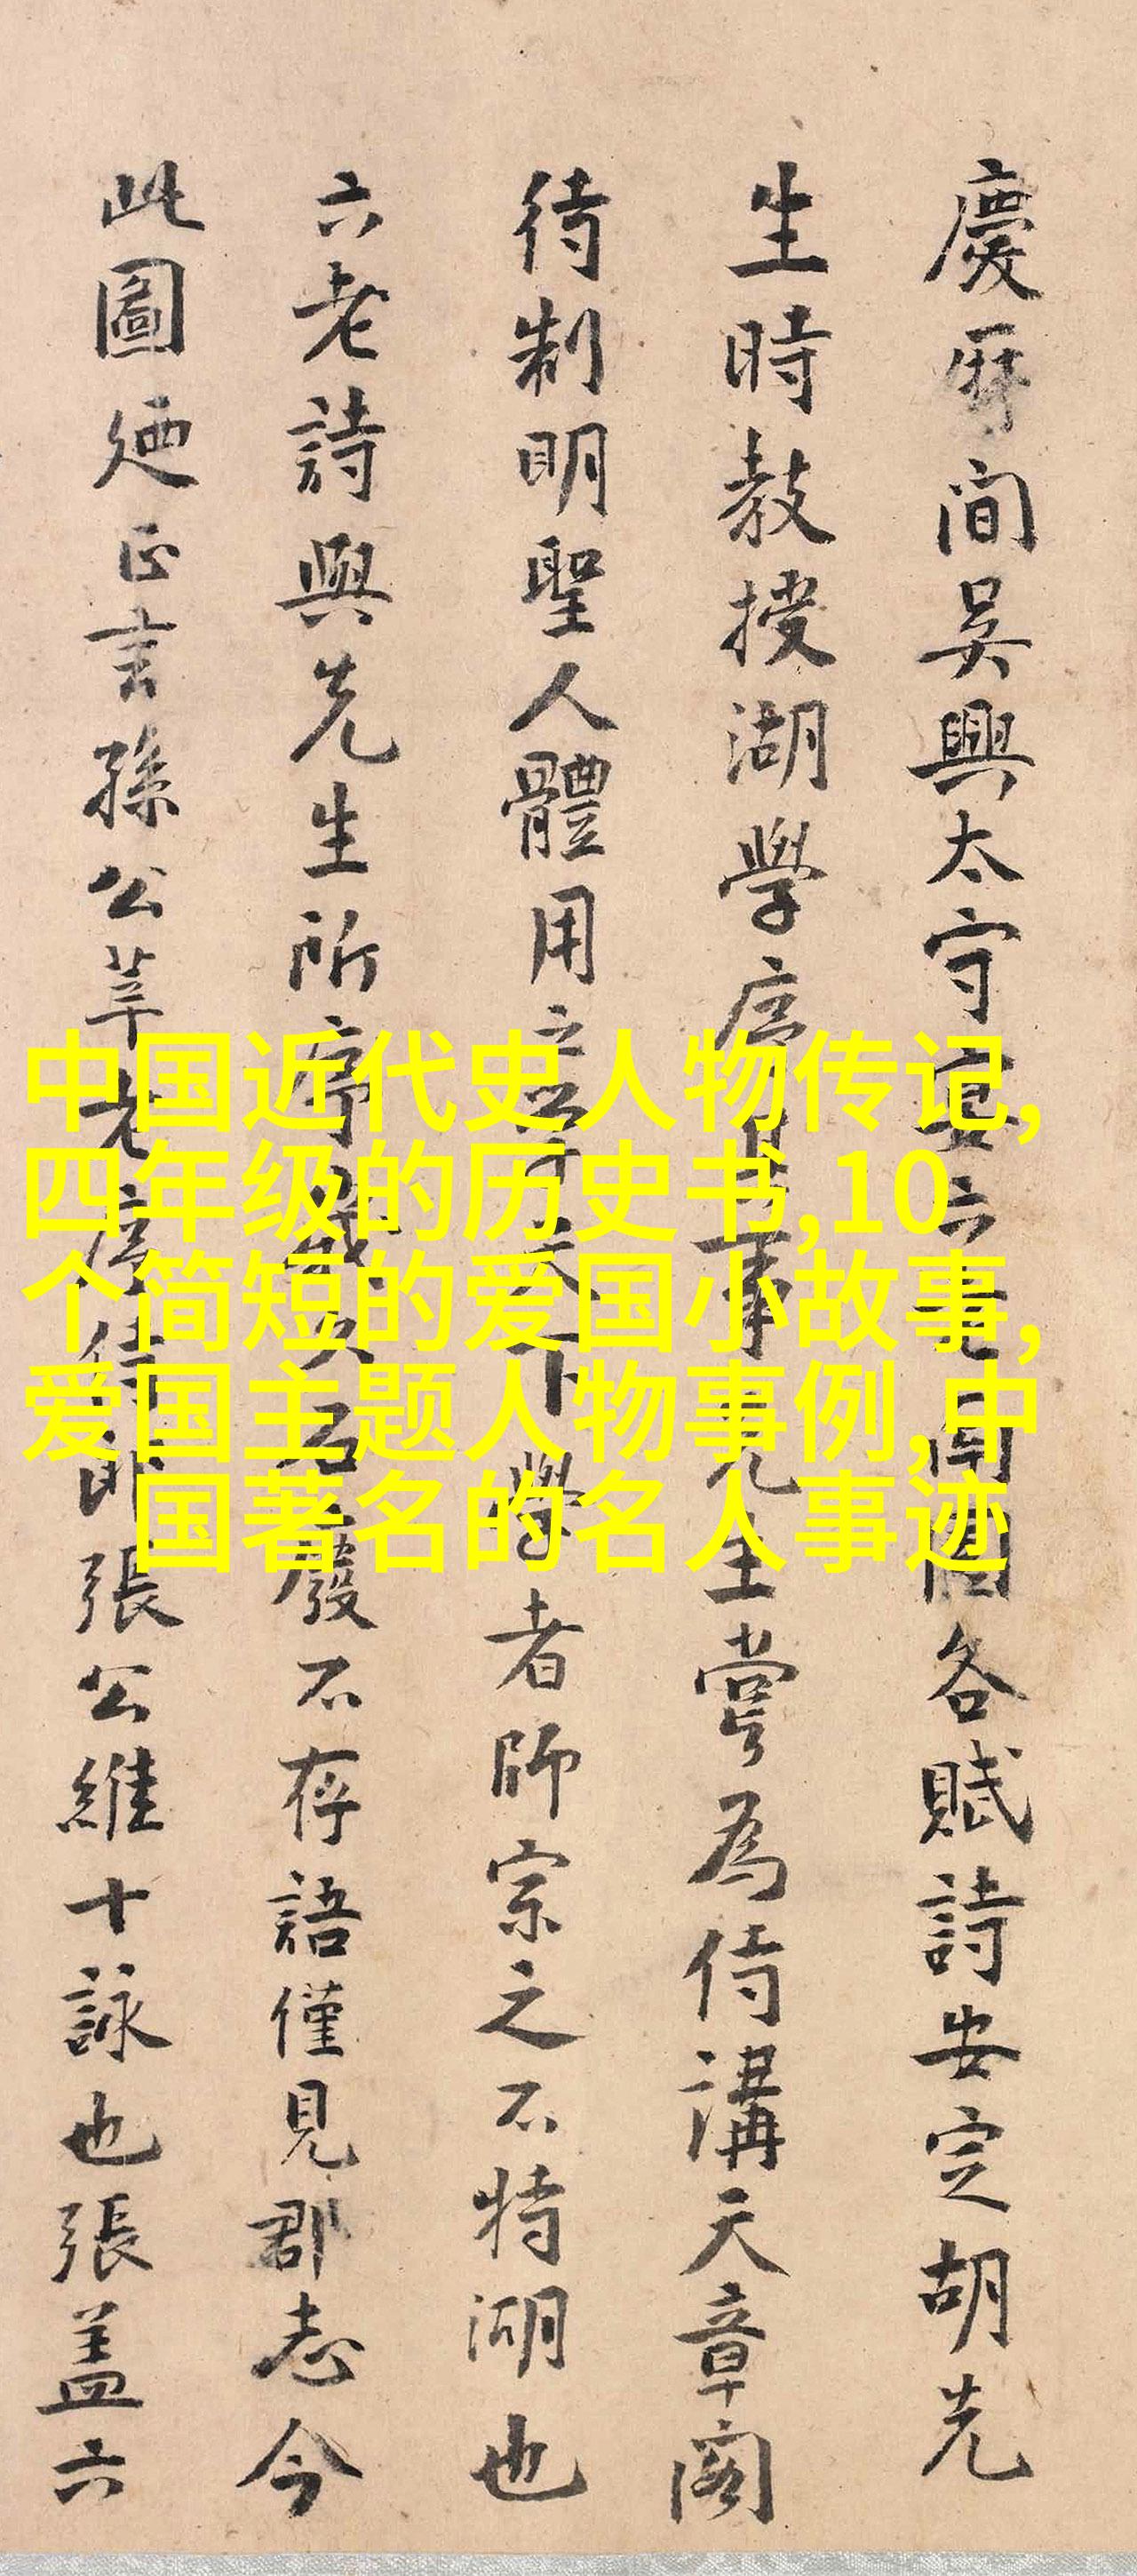 慶曆間吳興太守宴六老南園各賦詩安定胡先
生時教授湖學序其事先生嘗為侍講天章閣
待制明聖人體用之學天下學者師宗之不特湖也
六老詩與先生所序幾矣石廢不存語僅見郡志今
此圖廼正言孫公莘老序侍郎張公維十詠也張蓋六
中国近代史人物传记,
四年级的历史书,10
个简短的爱国小故事,
爱国主题人物事例,中
国著名的名人事迹